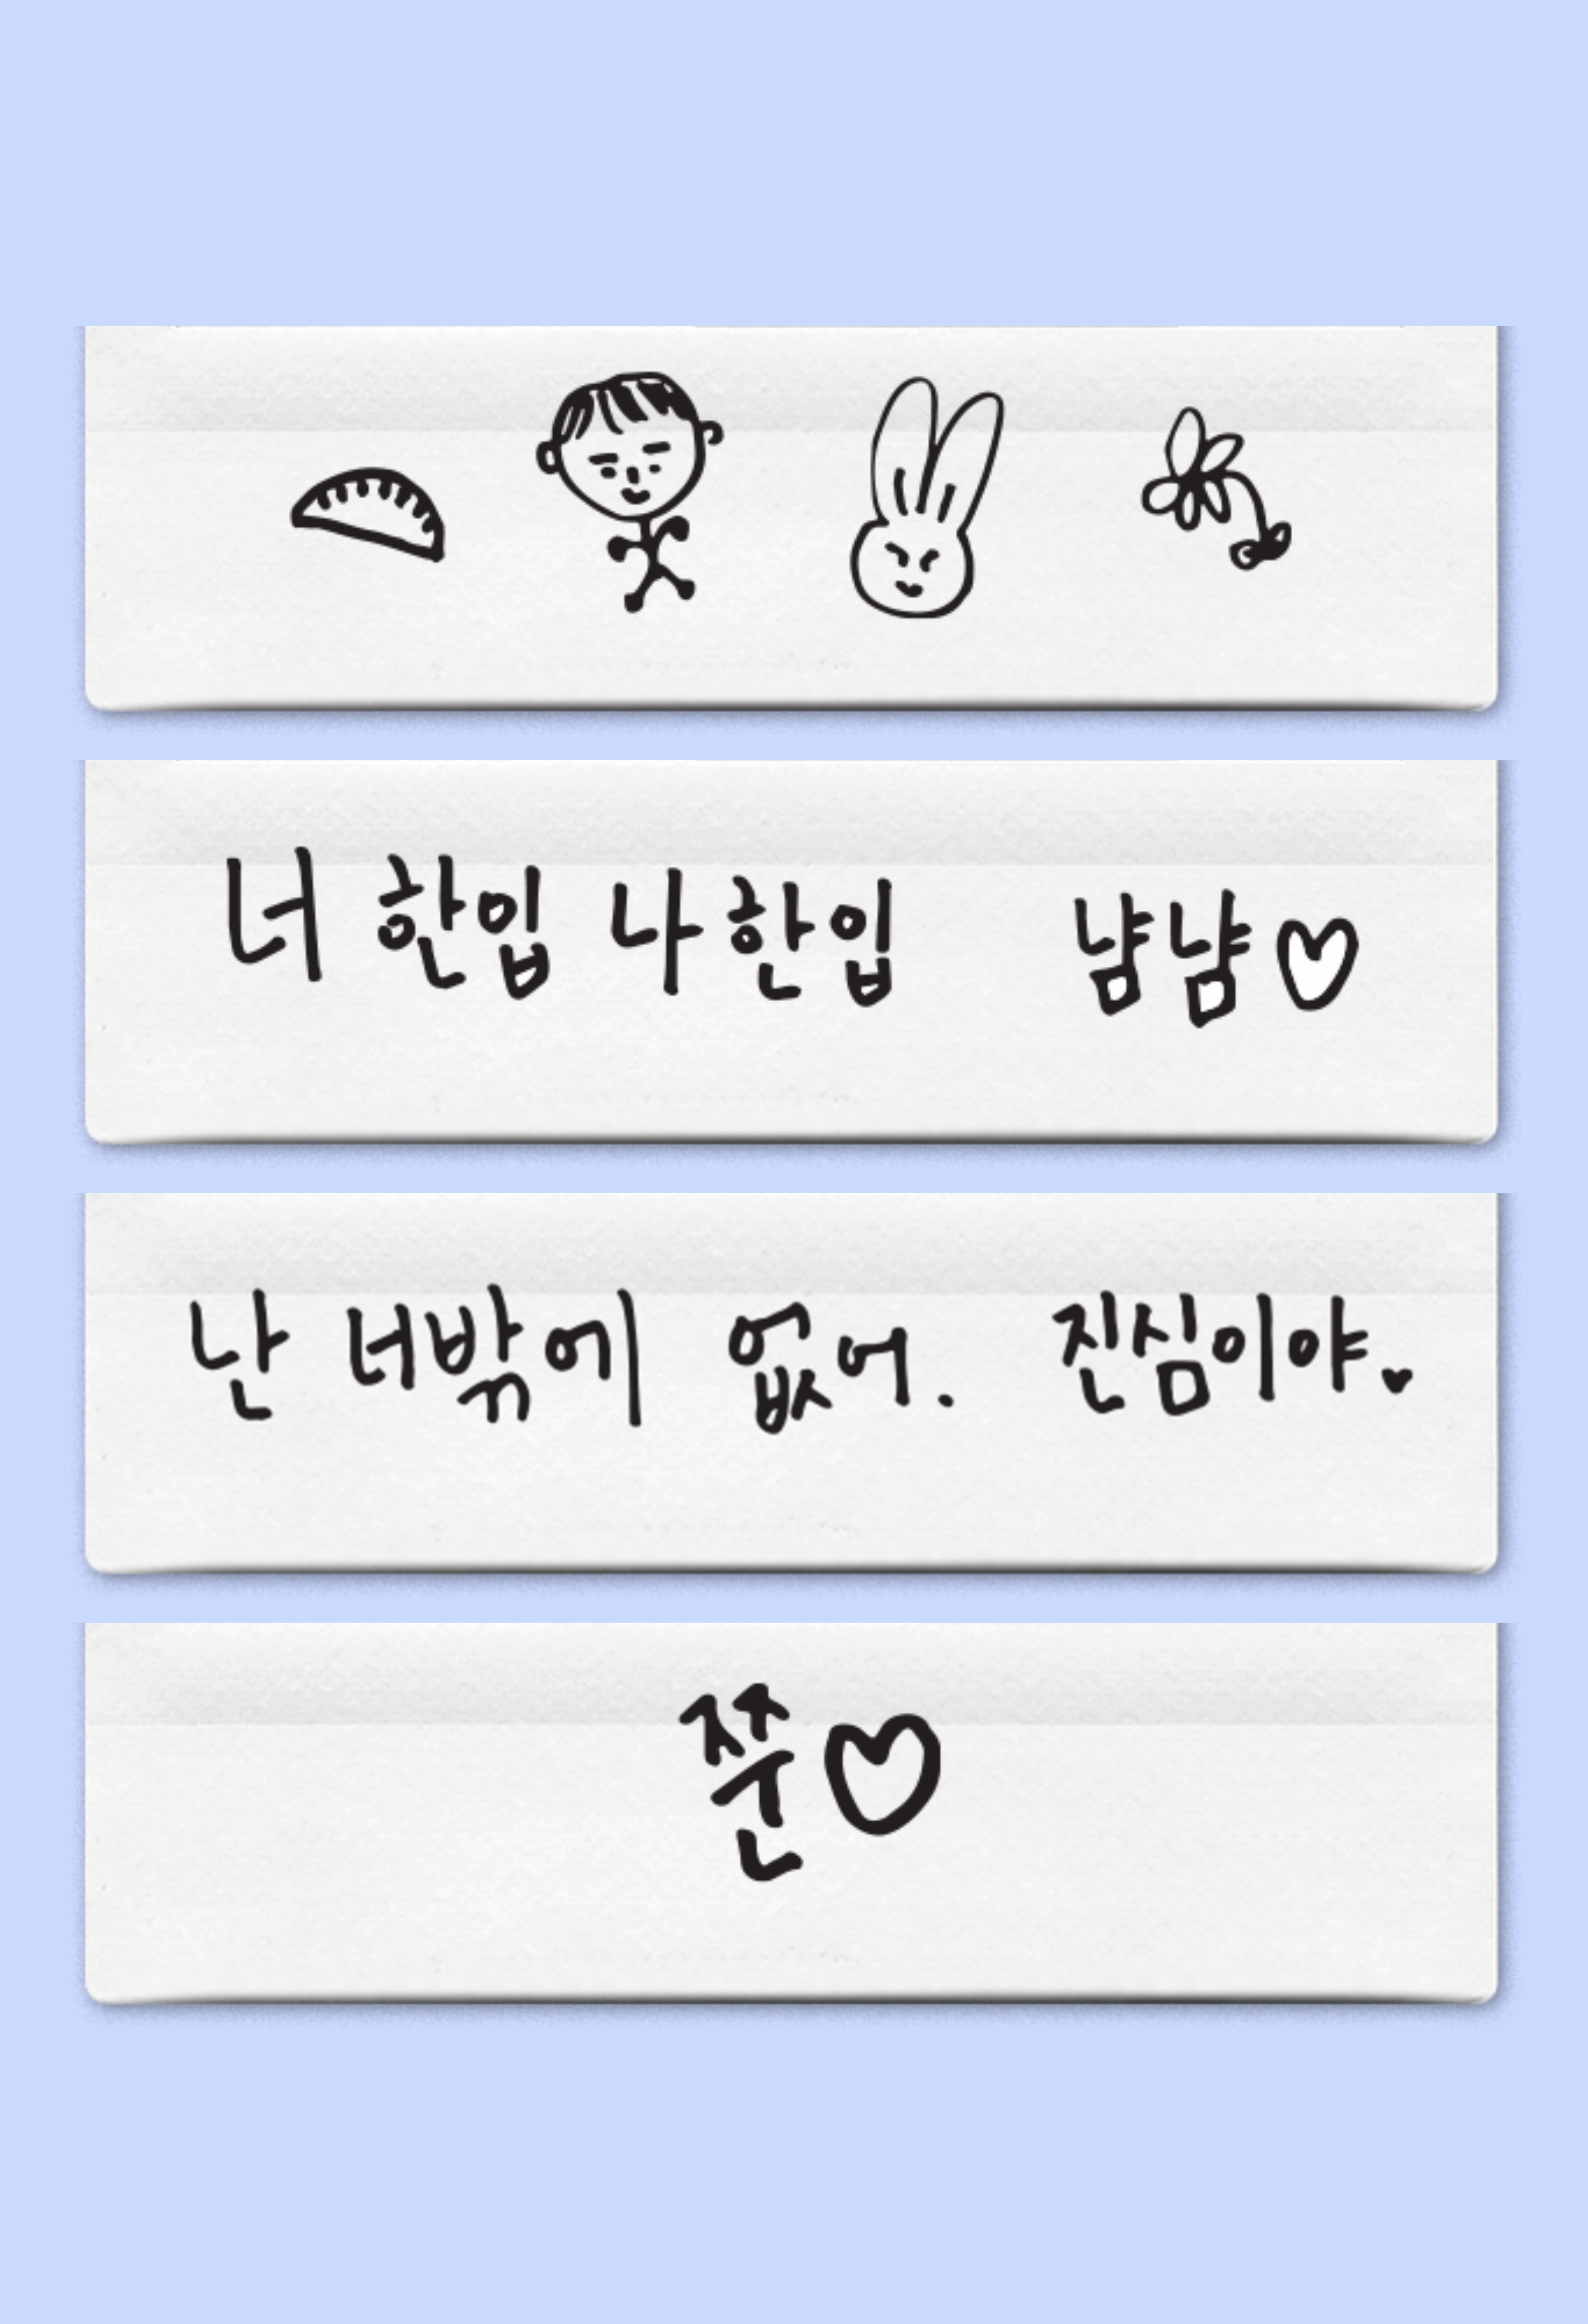 너 한입 나 한입 냠냠♡
난 너밖에 없어. 진심이야♥
쭌♡